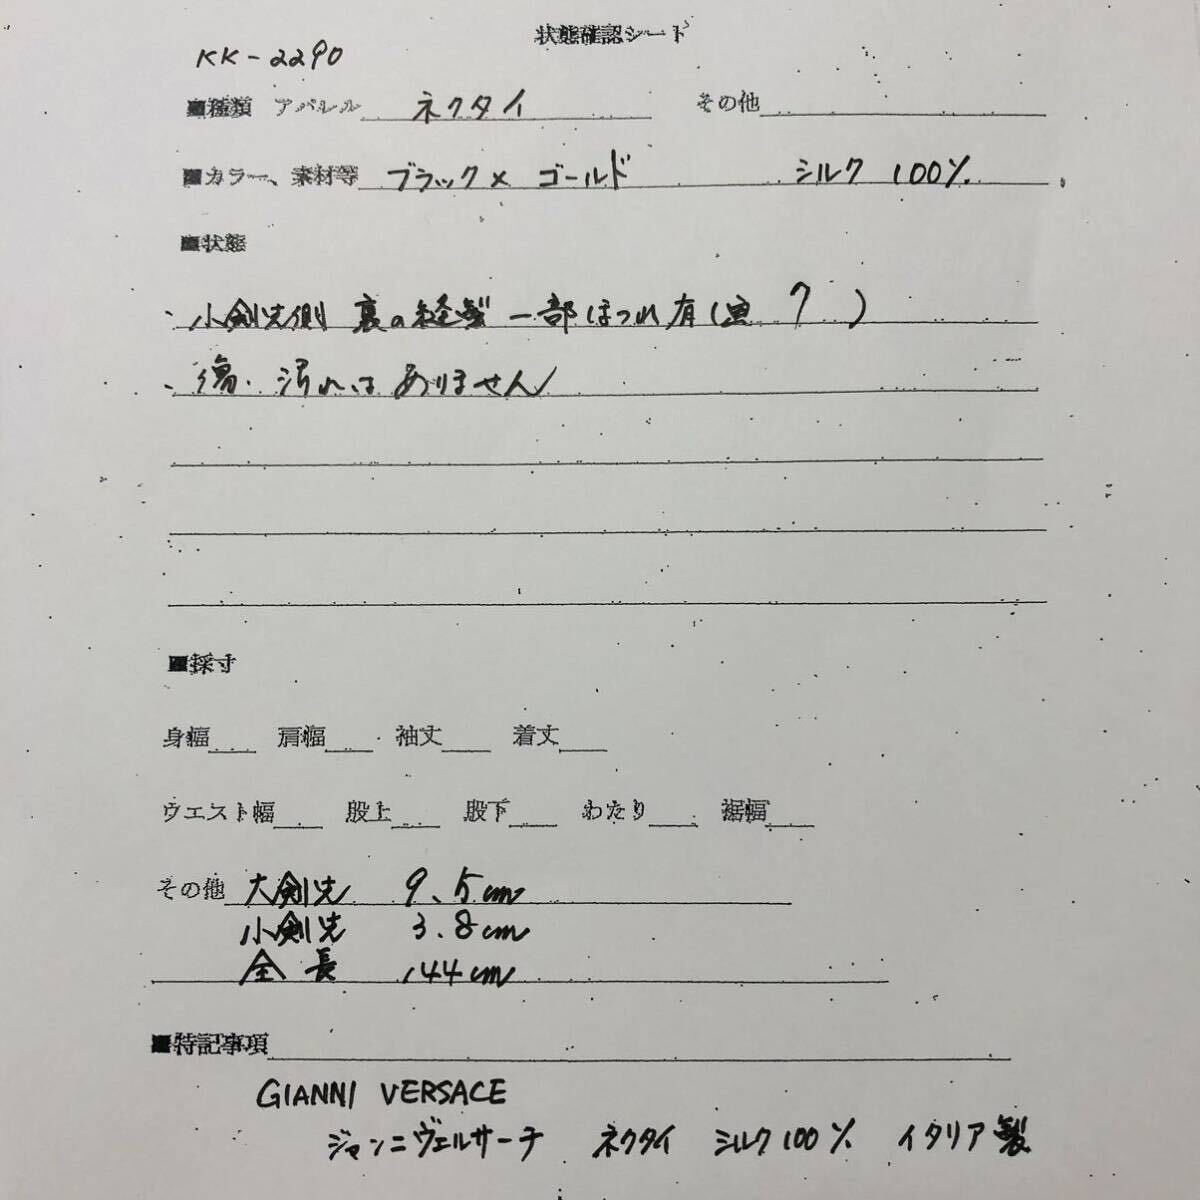 状態確認シート
KK-2290
■種類 アパレル ネクタイ その他
■カラー、素材等 ブラック× ゴールド シルク 100%
■状態
・小剣先側 裏の縫製 一部ほつれ有(画 7 )
・傷・汚れは ありません
■採寸
身幅 肩幅 袖丈 着丈
ウエスト幅 股上 股下 わたり 裾幅
その他 大剣先 9.5cm
小剣先 3.8cm
全長 144cm
■特記事項
GIANNI VERSACE
ジャンニヴェルサーチ ネクタイ シルク100% イタリア製